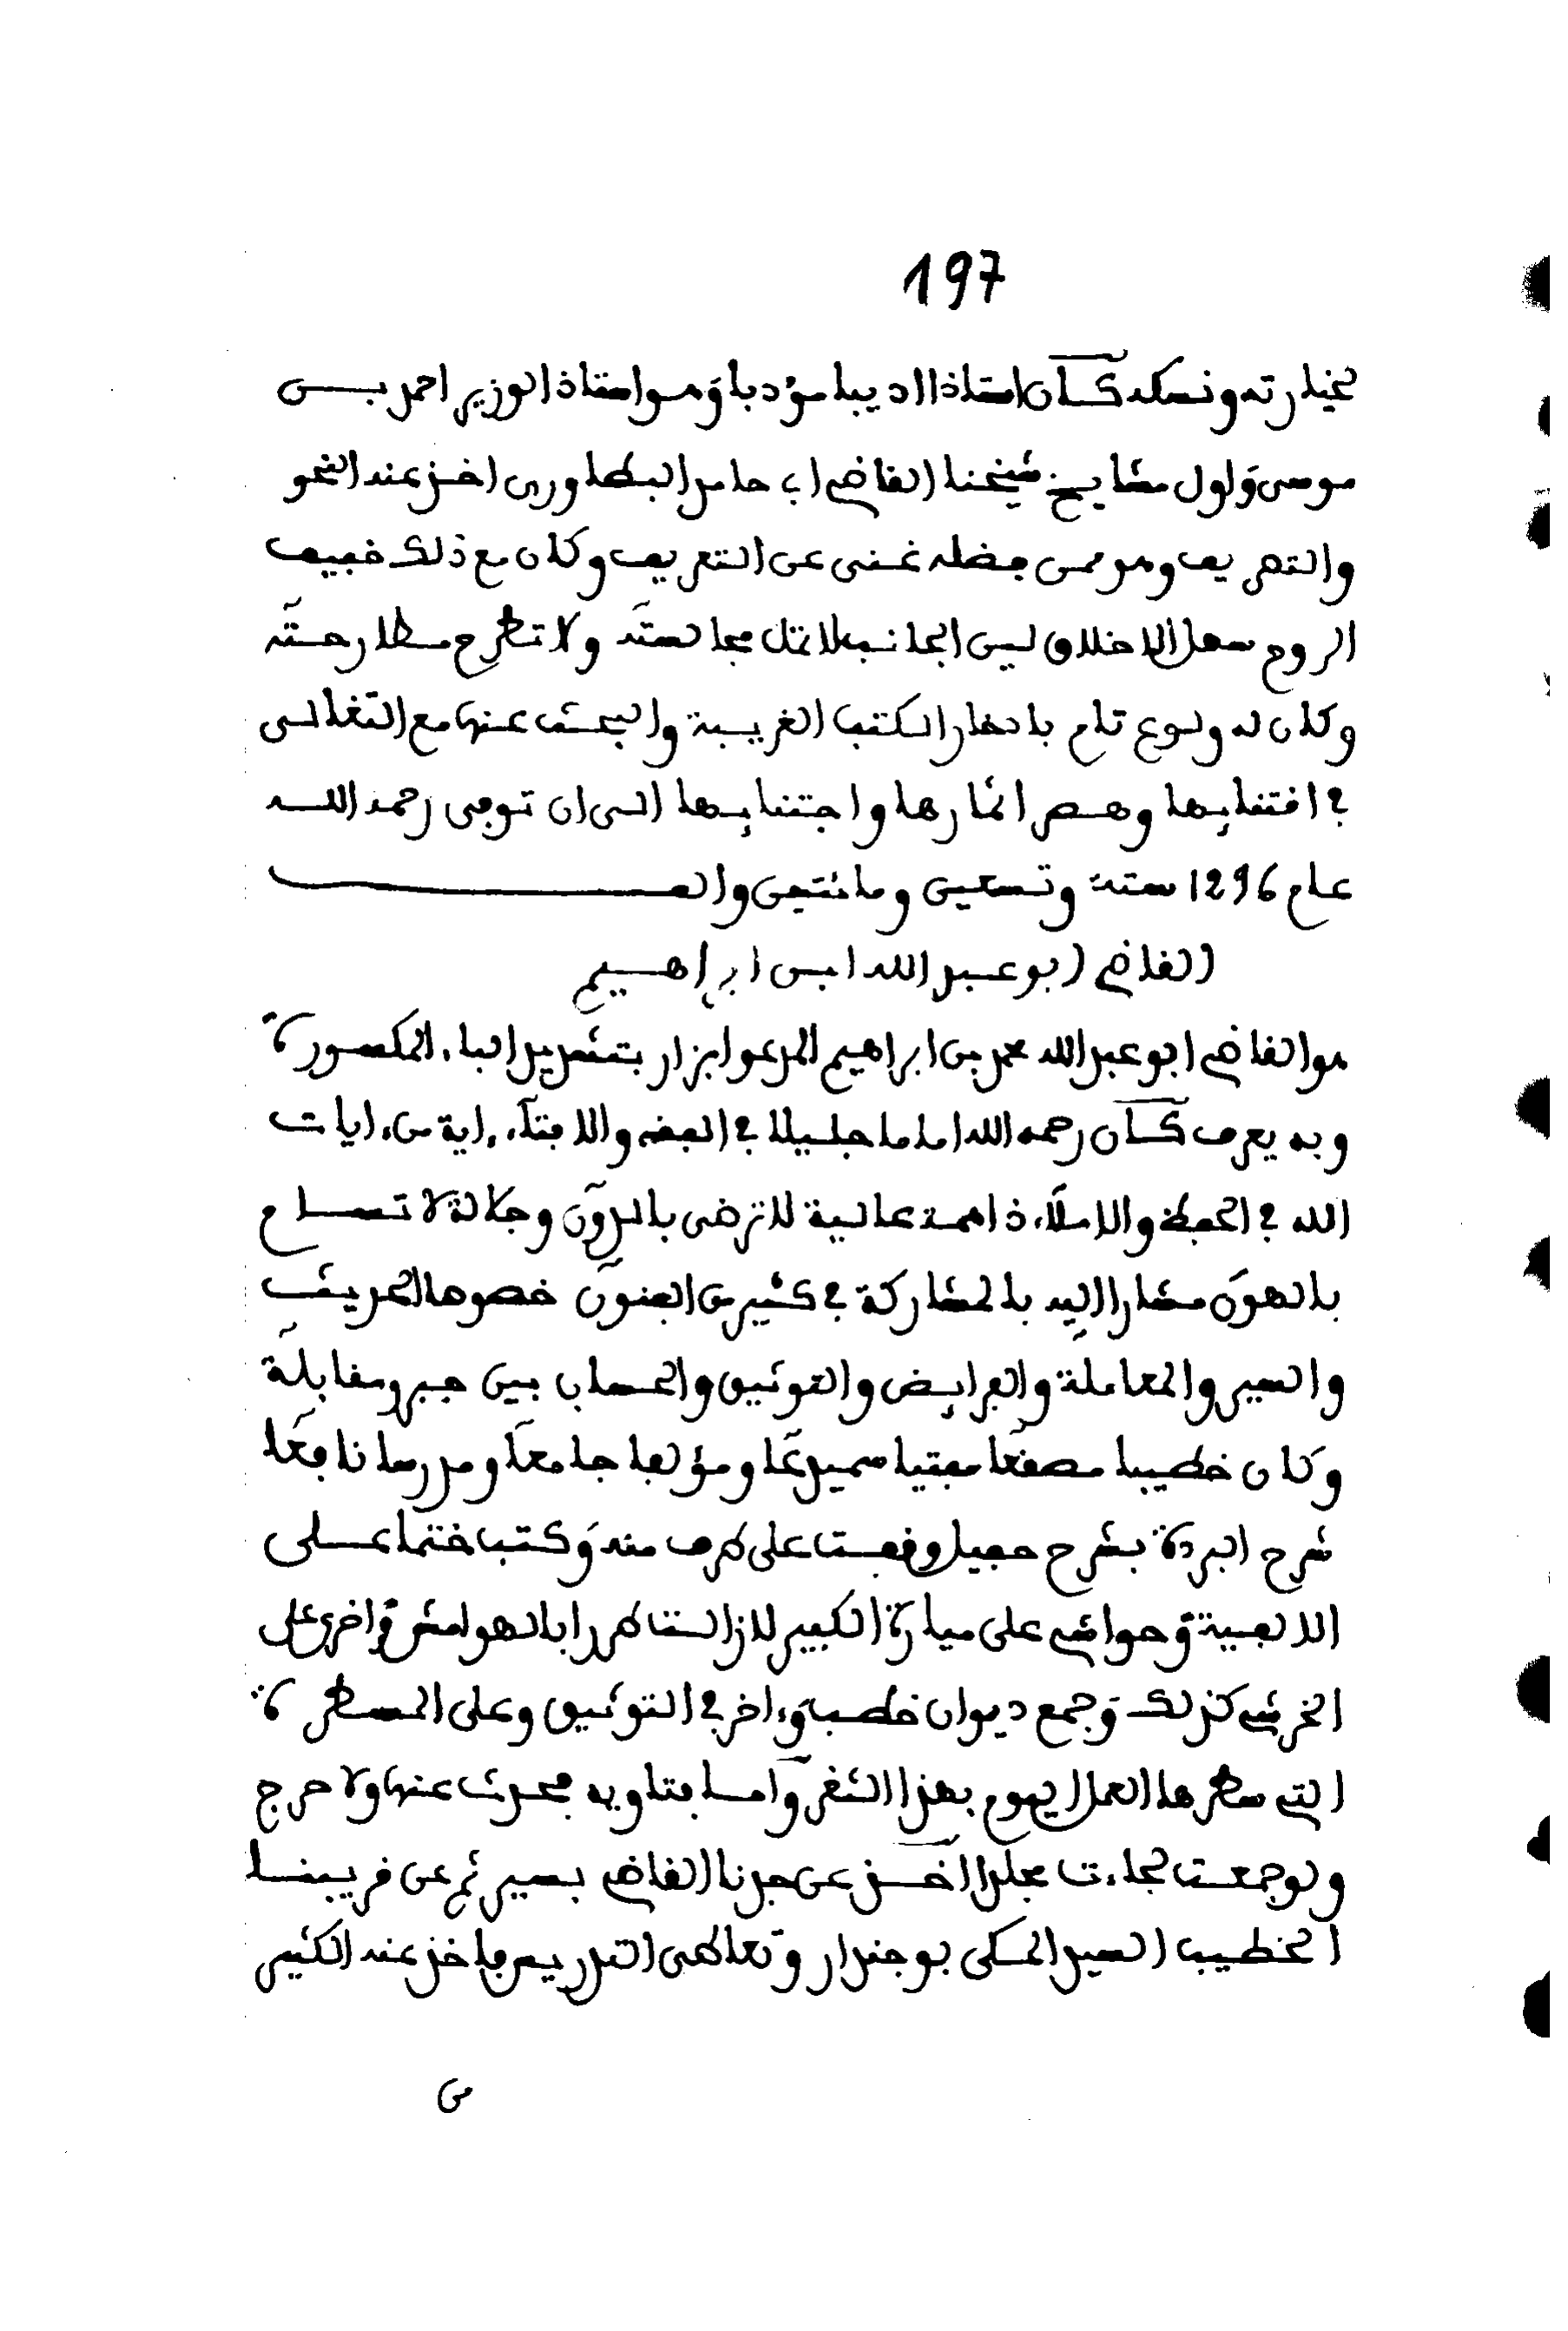 197
لخيارته ونسكه كان استاذا اديبا مؤدبا وهو استاذ الوزير احمد بن
موسى واول مشايخ شيخنا القاضي ابي حامد البطاوري اخذ عنه النحو
والتصريف وهو ممن فضله غني عن التعريف وكان مع ذلك خفيف
الروح سهل الاخلاق لين الجانب لا تمل مجالسته ولا تطرح مطارحته
وكان له ولوع تام بادخار الكتب الغريبة والبحث عنها مع التغالي
في اقتنايها وهصر اثمارها واجتنايها الى ان توفي رحمه الله
عام 1296 ستة وتسعين ومائتين والف
القاضي ابو عبد الله ابن ابراهيم
هو القاضي ابو عبد الله محمد بن ابراهيم المدعو ابزار بتشديد الباء المكسورة
وبه يعرف كان رحمه الله اماما جليلا في الفقه والافتاء ءاية من ءايات
الله في الحفظ والاملاء ذا همة عالية لا ترضى بالدون وجلالة لا تسام
بالهون مشارا اليه بالمشاركة في كثير من الفنون خصوصا الحديث
والسير والمعاملة والفرايض والتوثيق والحساب بين جبر ومقابلة
وكان خطيبا مصقعا مفتيا سميدعا ومؤلفا جامعا ومدرسا نافعا
شرح البردة بشرح حفيل وقفت على طرف منه وكتب ختما على
الالفية وحواشي على ميارة الكبير لازالت طررا بالهوامش واخرى على
الخرشي كذلك وجمع ديوان خطب وءاخر في التوثيق وعلى المسطرة
التي سطرها العمل اليوم بهذا الثغر واما فتاويه فحدث عنها ولا حرج
ولو جمعت لجاءت مجلدا اخذ عن جدنا القاضي بسير ثم عن قريبنا
الخطيب السيد المكي بوجندار وتعاطى التدريس فاخذ عنه الكثير
من